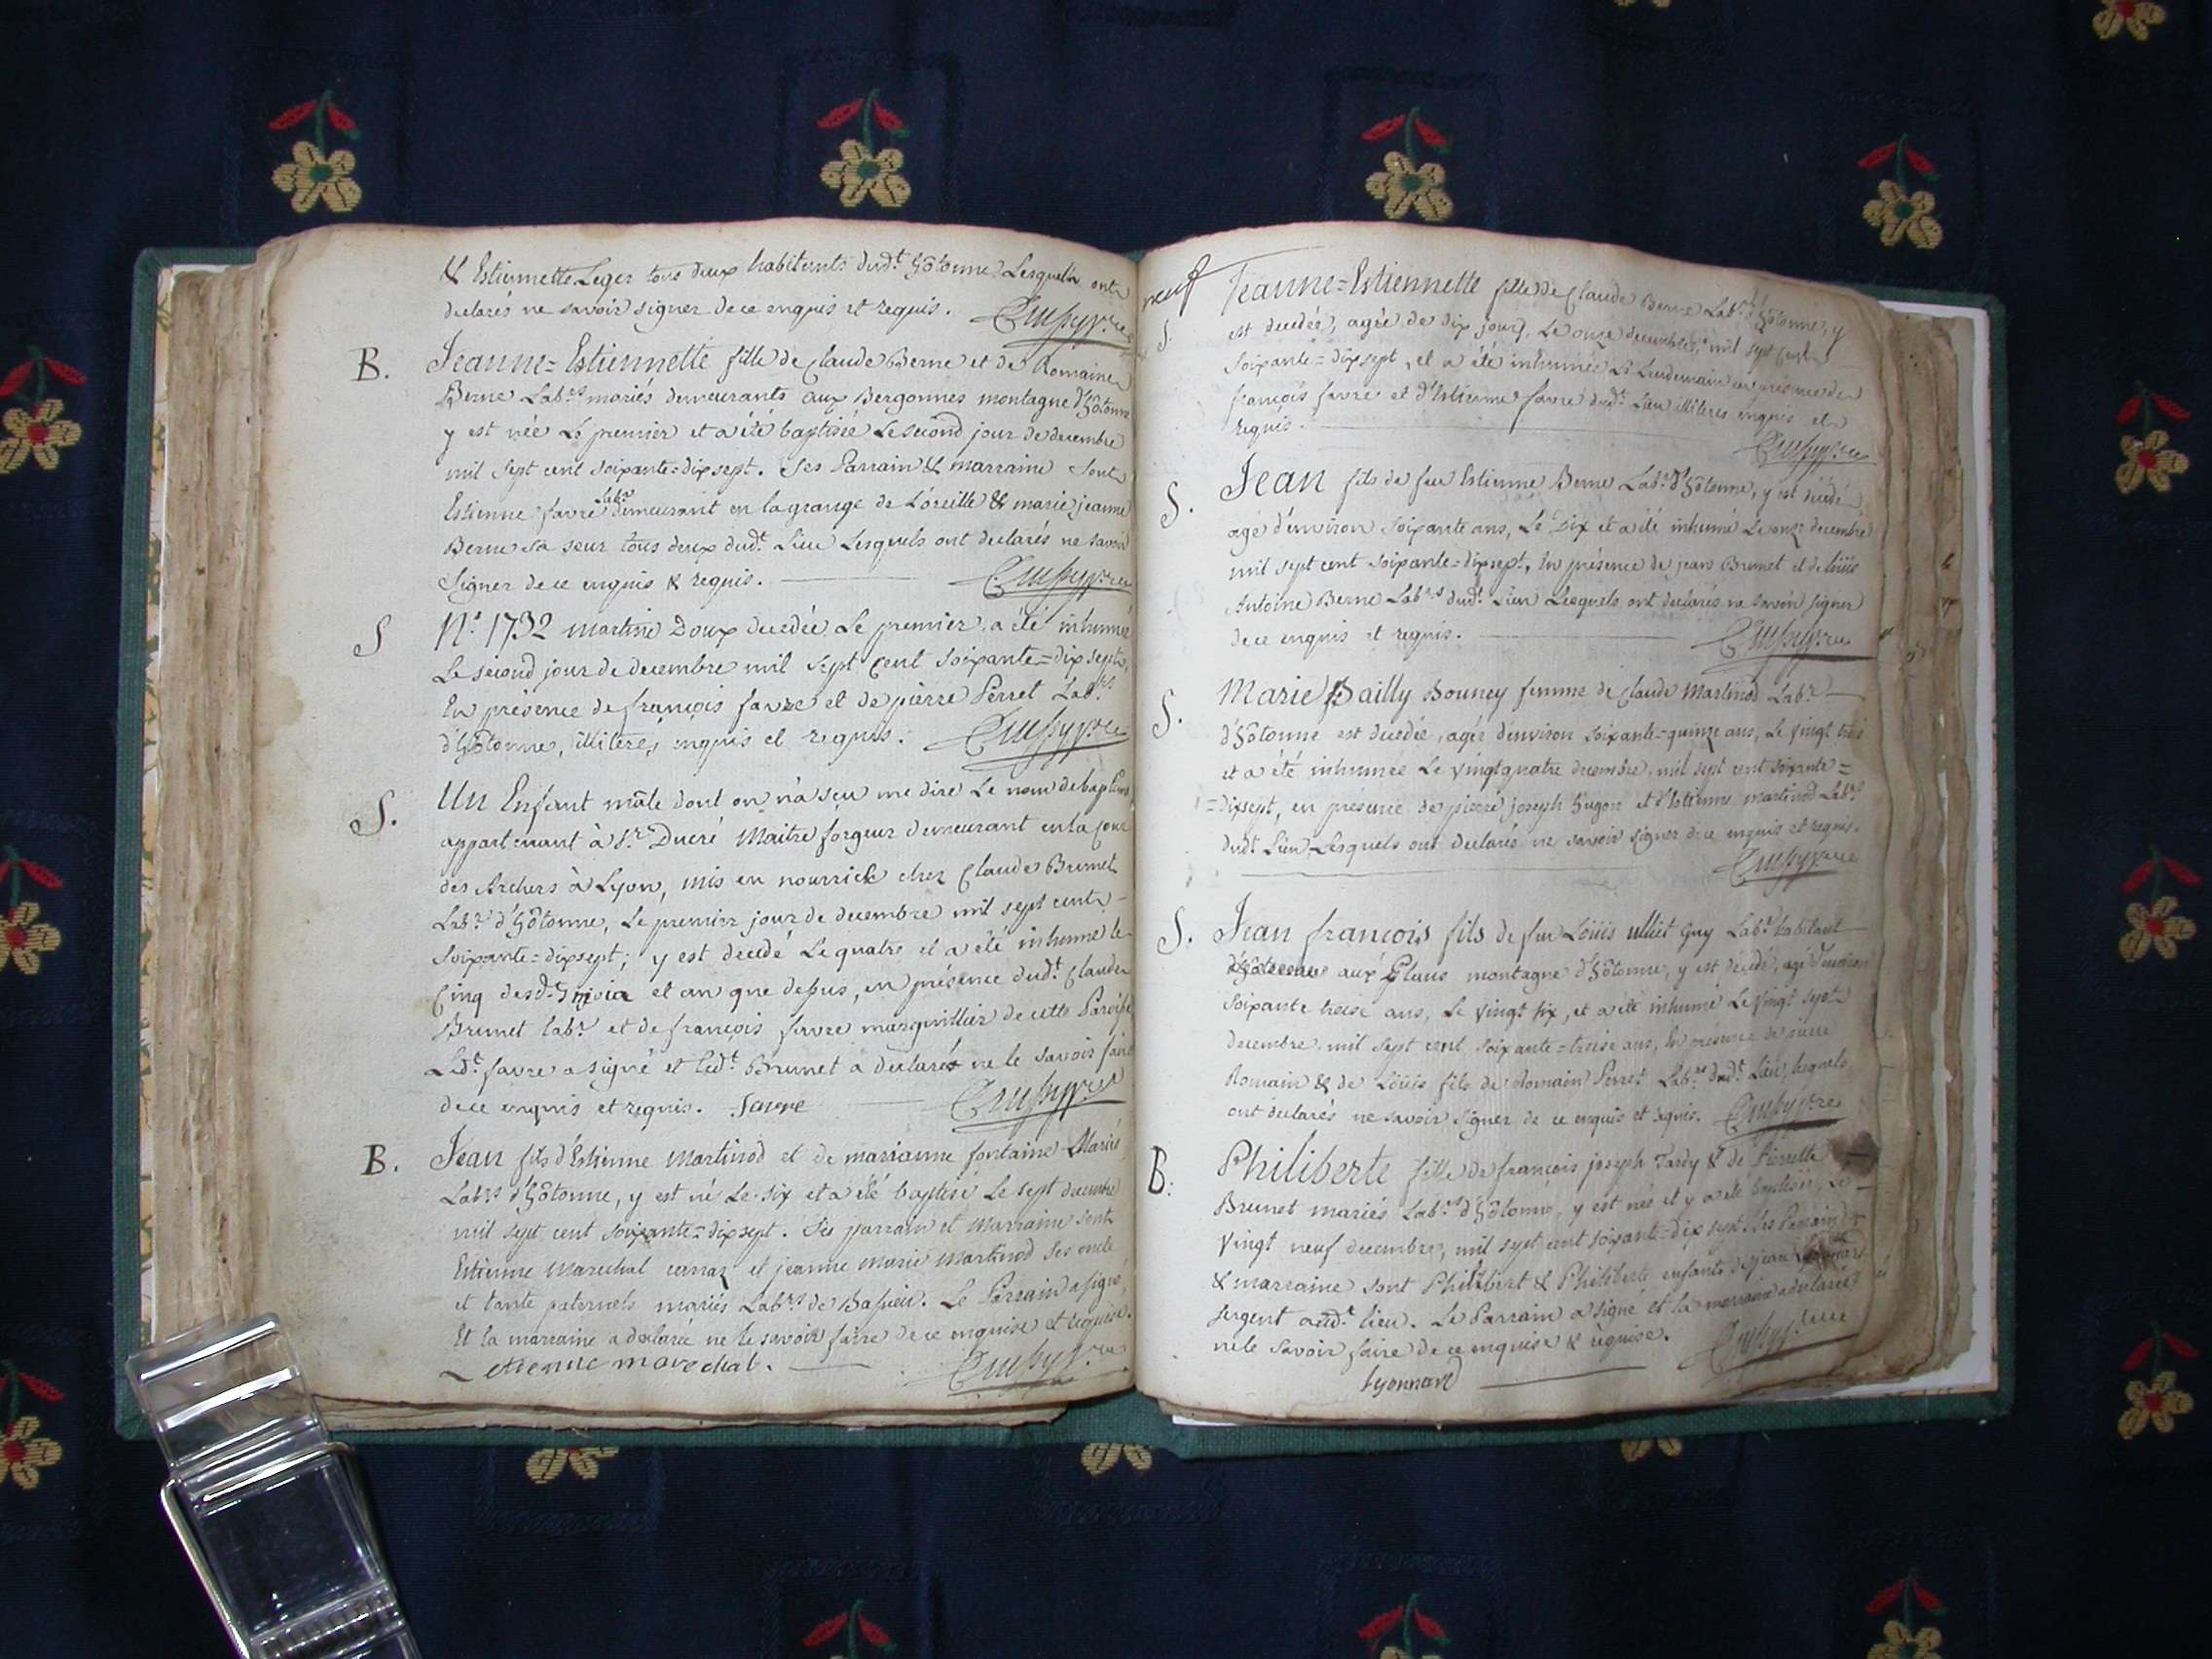 & Estiennette Leger tous deux habitants dudt. hôtonne Lesquels ont
declarés ne savoir signer de ce enquis et requis.
B. Jeanne=Estiennette fille de Claude Berne et de Romaine
Berne Labrs mariés demeurants aux Bergonnes montagne d'hôtonne
y est née Le premier et a été baptisée Le second jour de decembre
mil sept cent soixante=dix sept. Ses Parrain & marraine sont
Estienne favre labr demeurant en la grange de L'oreille & marie jeanne
Berne sa seur tous deux dudt. Lieu Lesquels ont declarés ne savoir
signer de ce enquis & requis.
S N°. 1732 martine Doux decedée Le premier, a été inhumée
Le second jour de decembre mil sept cent soixante=dix sept,
En présence de françois favre et de pierre Perret Labrs
d'hôtonne, illiterés enquis et requis.
S. Un Enfant mâle dont on n'a sçu me dire Le nom de baptême
appartenant à Sr. Ducré Maitre forgeur demeurant en la cour
des Archers à Lyon, mis en nourrice chez Claude Brunet
Labr. d'hôtonne, Le premier jour de decembre mil sept cent
soixante=dixsept; y est decedé Le quatre et a été inhumé le
Cinq desd. mois et an que dessus, en présence dudt. Claude
Brunet labr. et de françois favre marguillier de cette Paroisse
Ledt. favre a signé et ledt. Brunet a declaré ne le savoir faire
de ce enquis et requis. favre
B. Jean fils d'Estienne Martinod et de marianne fontaine Mariés
Labrs d'hôtonne, y est né Le six et a été baptisé Le sept decembre
mil sept cent soixante=dixsept. Ses parrain et Marraine sont
Estienne Marechal et jeanne Marie Martinod ses oncle
et tante paternels mariés Labrs de Bassieu. Le Parrain a signé,
Et la marraine a declarée ne le savoir faire de ce enquise et requise.
etienne marechal.
neuf Jeanne=Estiennette fille de Claude Berne Labr. d'hôtonne, y
S. est decedée, agée de dix jours, Le onze decembre, mil sept cent
soixante=dixsept, et a été inhumée Le Lendemain en présence de
françois favre et d'Estienne favre dudt. Lieu illiterés enquis et
requis.
S. Jean fils de feu Estienne Berne Labr. d'hôtonne, y est decedé,
agé d'environ soixante ans, Le Dix et a été inhumé Le onze decembre
mil sept cent soixante=dixsept, En présence de jean Brunet et de Loüis
Antoine Berne Labrs dudt. Lieu Lesquels ont declarés ne savoir signer
de ce enquis et requis.
S. Marie Bailly Bouney femme de Claude Martinod Labr.
d'hôtonne est decedée, agée d'environ soixante=quinze ans, Le vingt trois
et a été inhumée Le vingt quatre decembre mil sept cent soixante=
=dixsept, en présence de pierre joseph hugon et d'Estienne martinod Labrs
dudt. Lieu Lesquels ont declarés ne savoir signer de ce enquis et requis.
S. Jean françois fils de feu Loüis Guy Labr. habitant
aux Plans montagne d'hôtonne, y est decedé, agé d'environ
soixante treise ans, Le vingt six, et a été inhumé Le vingt sept
decembre mil sept cent soixante=treise ans, En présence de pierre
Romain & de Loüis fils de Romain Perret Labrs dudt. Lieu, lesquels
ont declarés ne savoir signer de ce enquis et requis.
B. Philiberte fille de françois joseph Tardy & de Pierrette
Brunet mariés Labrs d'hôtonne, y est née et y a été baptisée, Le
vingt neuf decembre, mil sept cent soixante=dix sept. Ses Parrain
& marraine sont Philibert & Philiberte enfants de jean
sergent audt. lieu. Le Parrain a signé et la marraine a declarée
ne le savoir faire de ce enquise & requise.
lyonnard